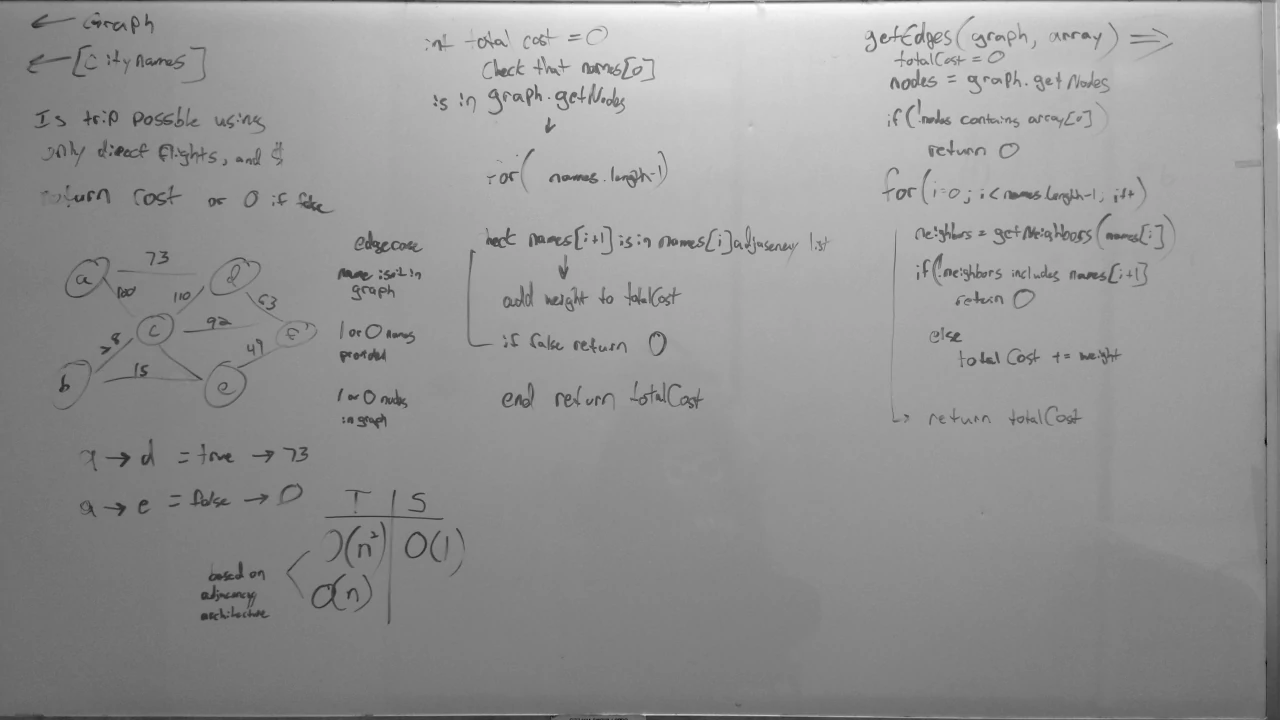 ← Graph
← [City names]
Is trip possble using
only direct flights, and $
return cost or 0 if false
a
73
d
100
110
63
c
92
f
28
49
b
15
e
edgecase
name isn't in
graph
1 or 0 names
provided
1 or 0 nodes
in graph
a → d = true → 73
a → e = false → 0
T | S
O(n²) O(1)
O(n)
based on
adjacency
architecture
int total cost = 0
Check that names[0]
is in graph.getNodes
↓
for( names.length-1)
heck names[i+1] is in names[i] adjasency list
↓
add weight to totalCost
if false return 0
end return totalCost
getEdges(graph, array) ⇒
totalCost = 0
nodes = graph.getNodes
if(!nodes contains array[0])
return 0
for(i=0; i<names.length-1; i++)
neighbors = getNeighbors(names[i])
if(!neighbors includes names[i+1]
return 0
else
total Cost += weight
↳ return totalCost